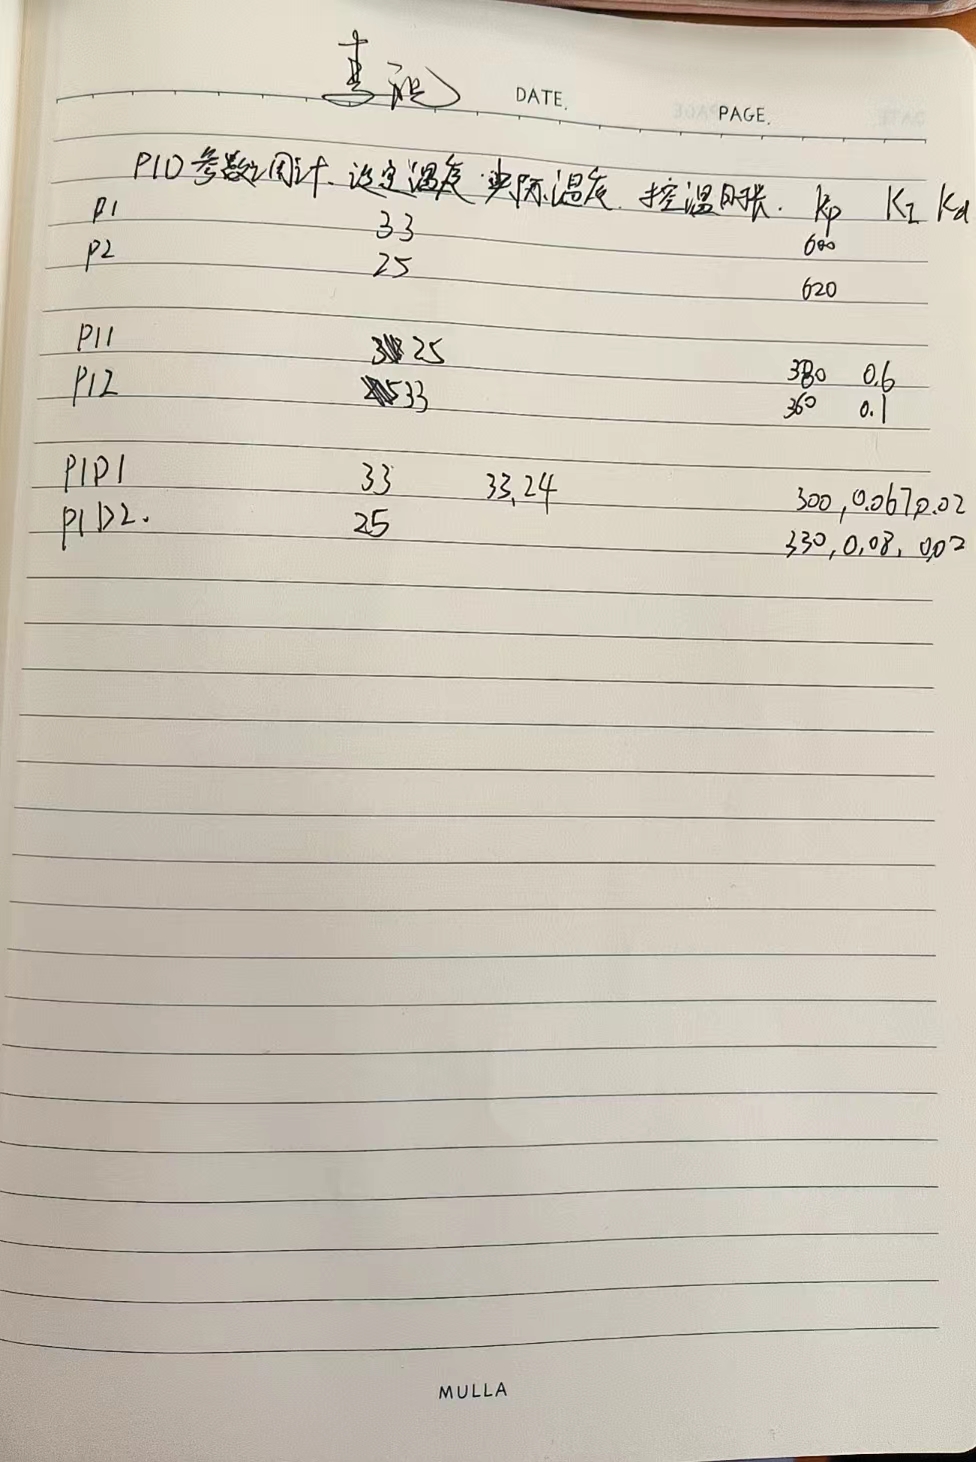 DATE. PAGE.
PID 参数调计. 设定温度. 实际温度. 控温时长. Kp KI Kd
P1 33 600
P2 25 620
PI1 25 380 0.6
PI2 33 360 0.1
PID1 33 33.24 300, 0.067, 0.02
PID2. 25 330, 0.08, 0.02
MULLA